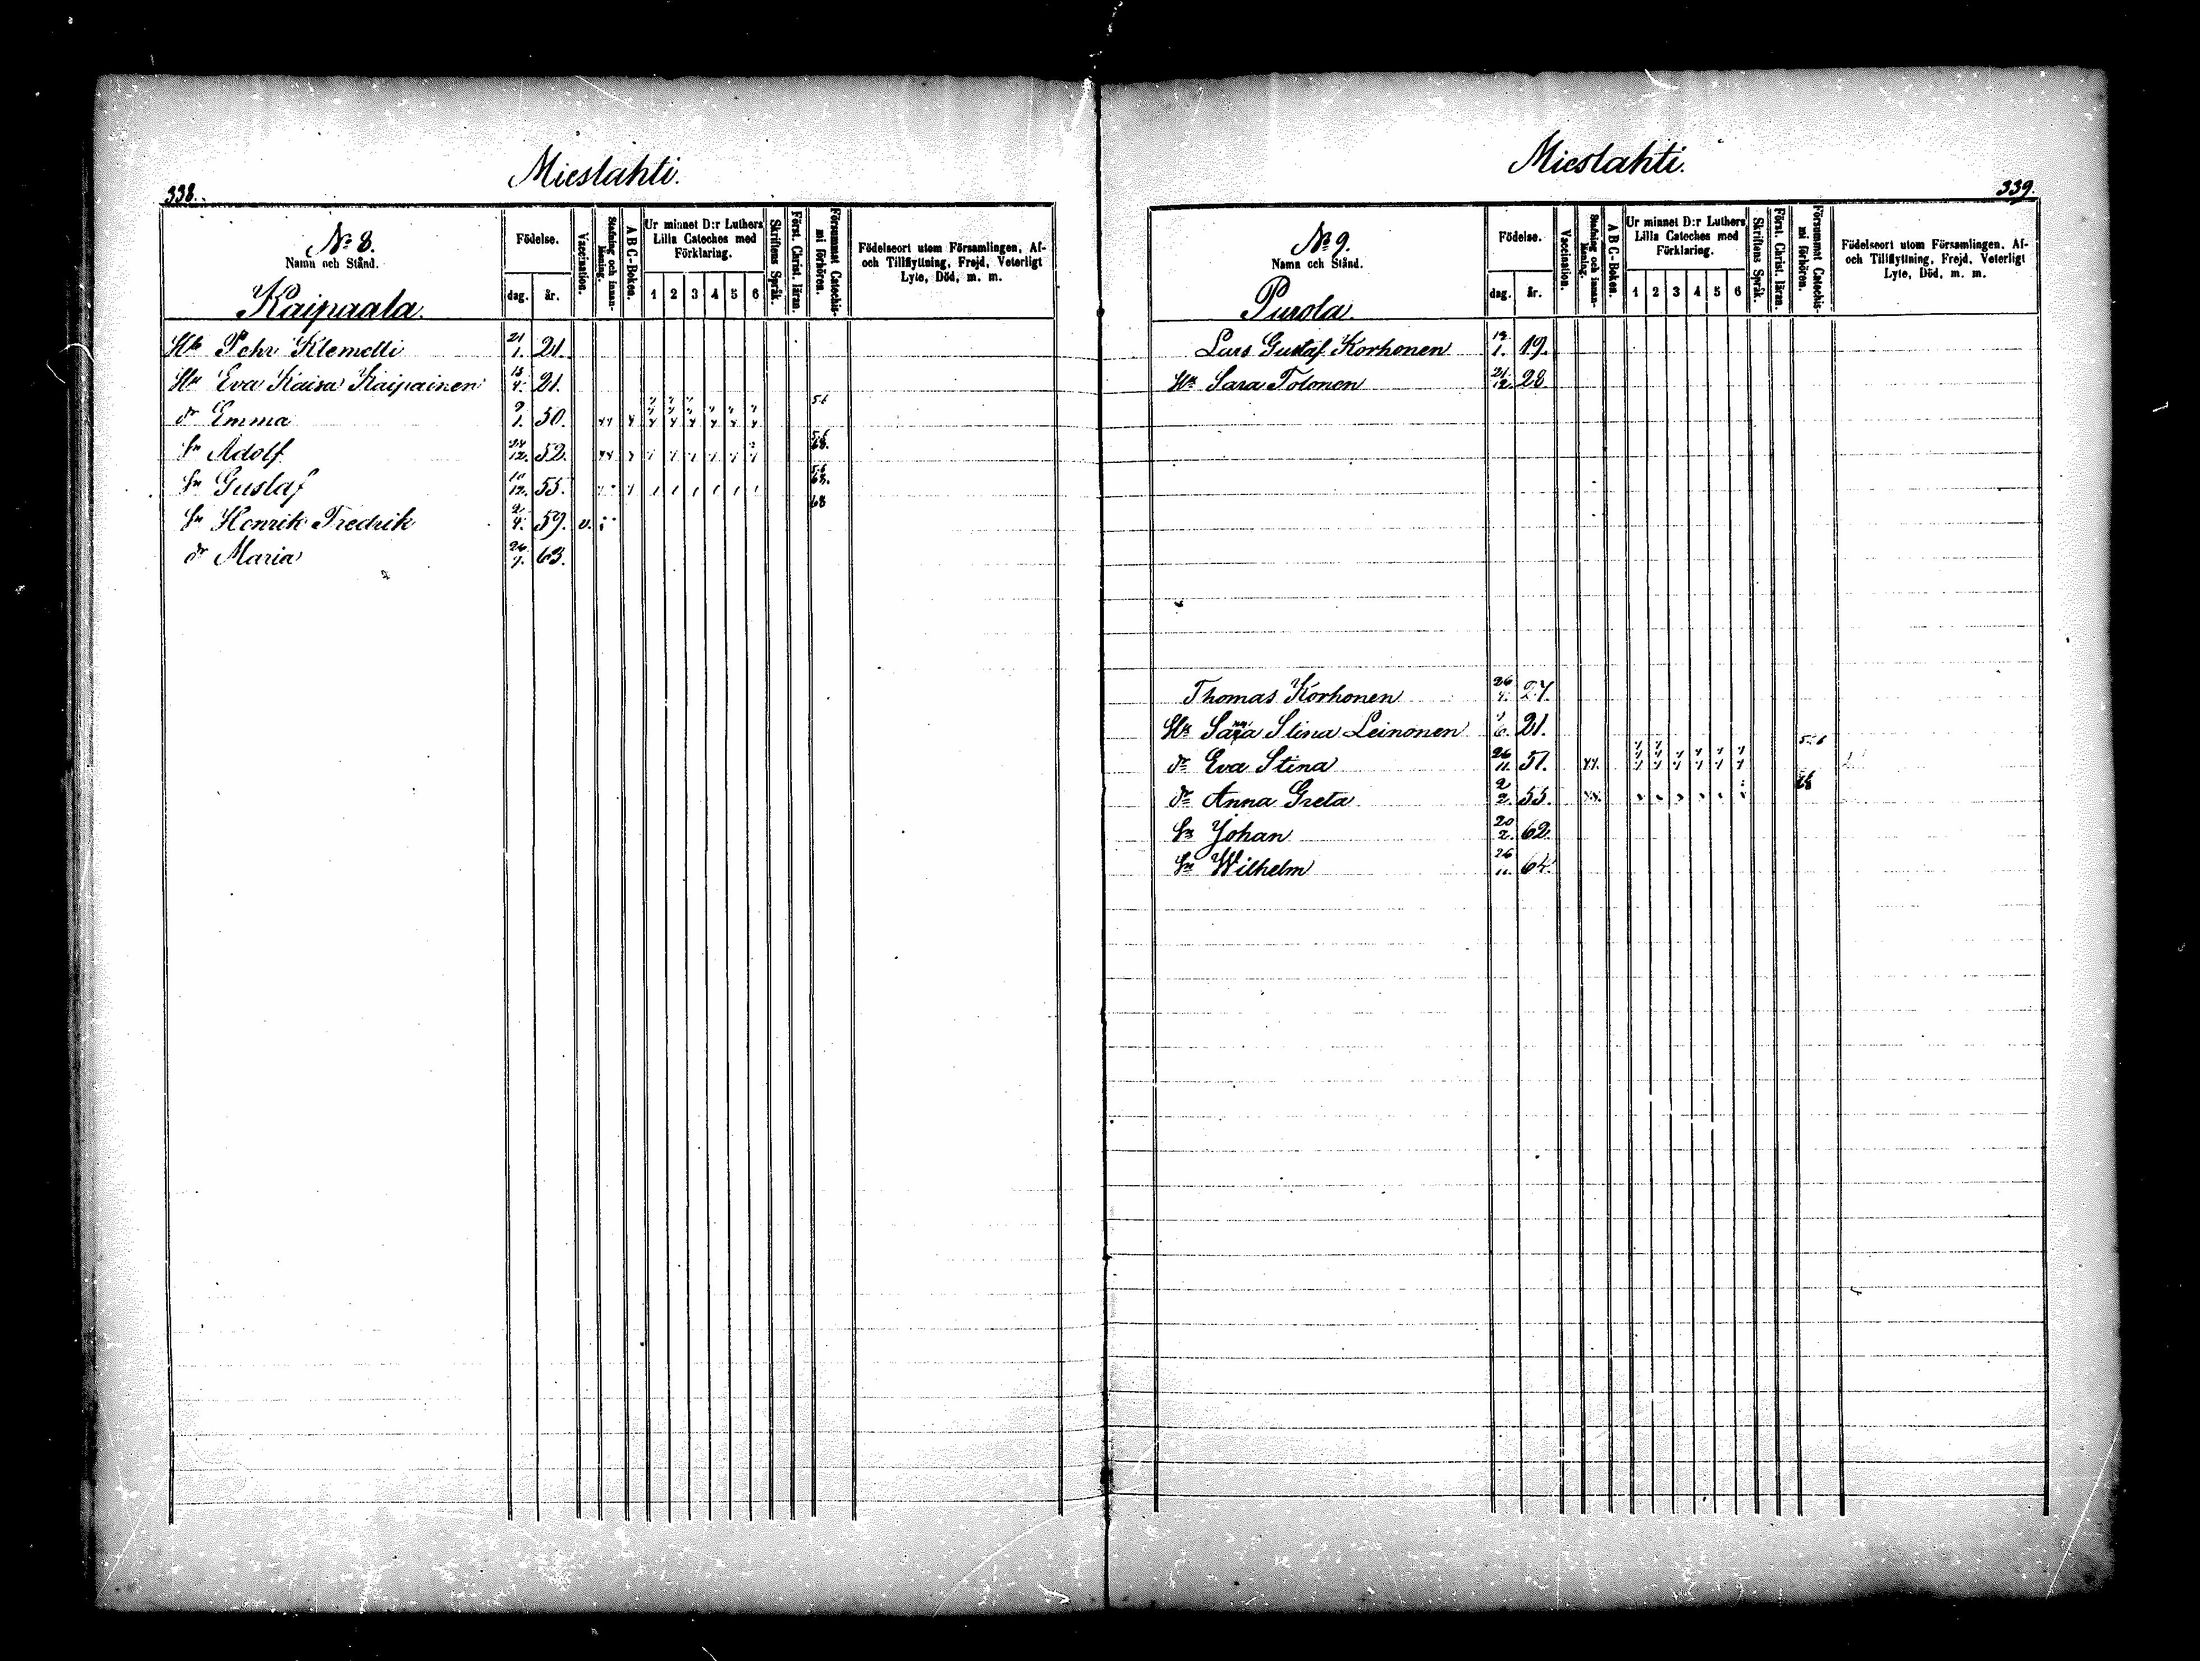 338.
Mieslahti.
No 8.
Namn och Stånd.
Kaipaala.
Födelse.
dag. år.
Vaccination.
Stafning och innanläsning.
A B C-Boken.
Ur minnet D:r Luthers
Lilla Cateches med
Förklaring.
1 2 3 4 5 6
Skriftens Språk.
Först. Christ. läran.
Försummat Catechismi förhören.
Födelseort utom Församlingen, Af-
och Tillflyttning, Frejd, Veterligt
Lyte, Död, m. m.
Pehr Klemetti 21/1. 21.
Hu Eva Kaisa Kaipainen 15/4. 21.
dr Emma 9/1. 50. 56
sn Adolf 24/12. 52. 56 68.
sn Gustaf 10/12. 55.
sn Henrik Fredrik 2/4. 59. v. 68
dr Maria 26/7. 63.
Mieslahti.
339.
No 9.
Namn och Stånd.
Purola.
Födelse.
dag. år.
Vaccination.
Stafning och innanläsning.
A B C-Boken.
Ur minnet D:r Luthers
Lilla Cateches med
Förklaring.
1 2 3 4 5 6
Skriftens Språk.
Först. Christ. läran.
Försummat Catechismi förhören.
Födelseort utom Församlingen, Af-
och Tillflyttning, Frejd, Veterligt
Lyte, Död, m. m.
Lars Gustaf Korhonen 1. 19.
Hu Sara Tolonen 21/12. 28
Thomas Korhonen 26/4. 27.
Hu Stina Leinonen 6. 21.
dr Eva Stina 26/11. 51. 56
dr Anna Greta 2/2. 55. 68
sn Johan 20/2. 62.
sn Wilhelm 26/11. 64.